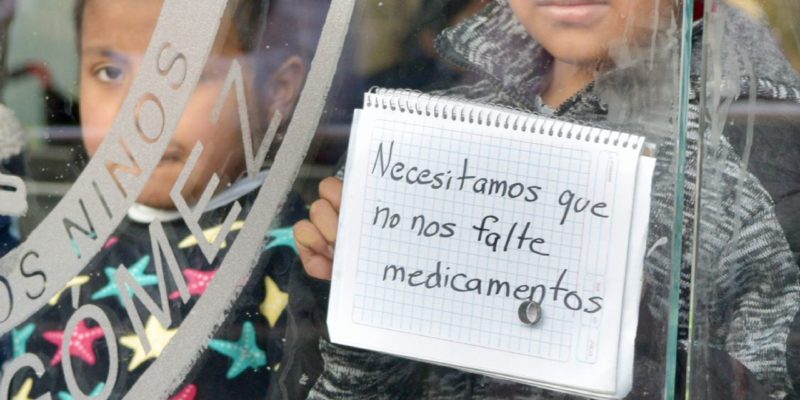 Necesitamos que
no nos falte
medicamentos
OS NIÑOS
GÓMEZ